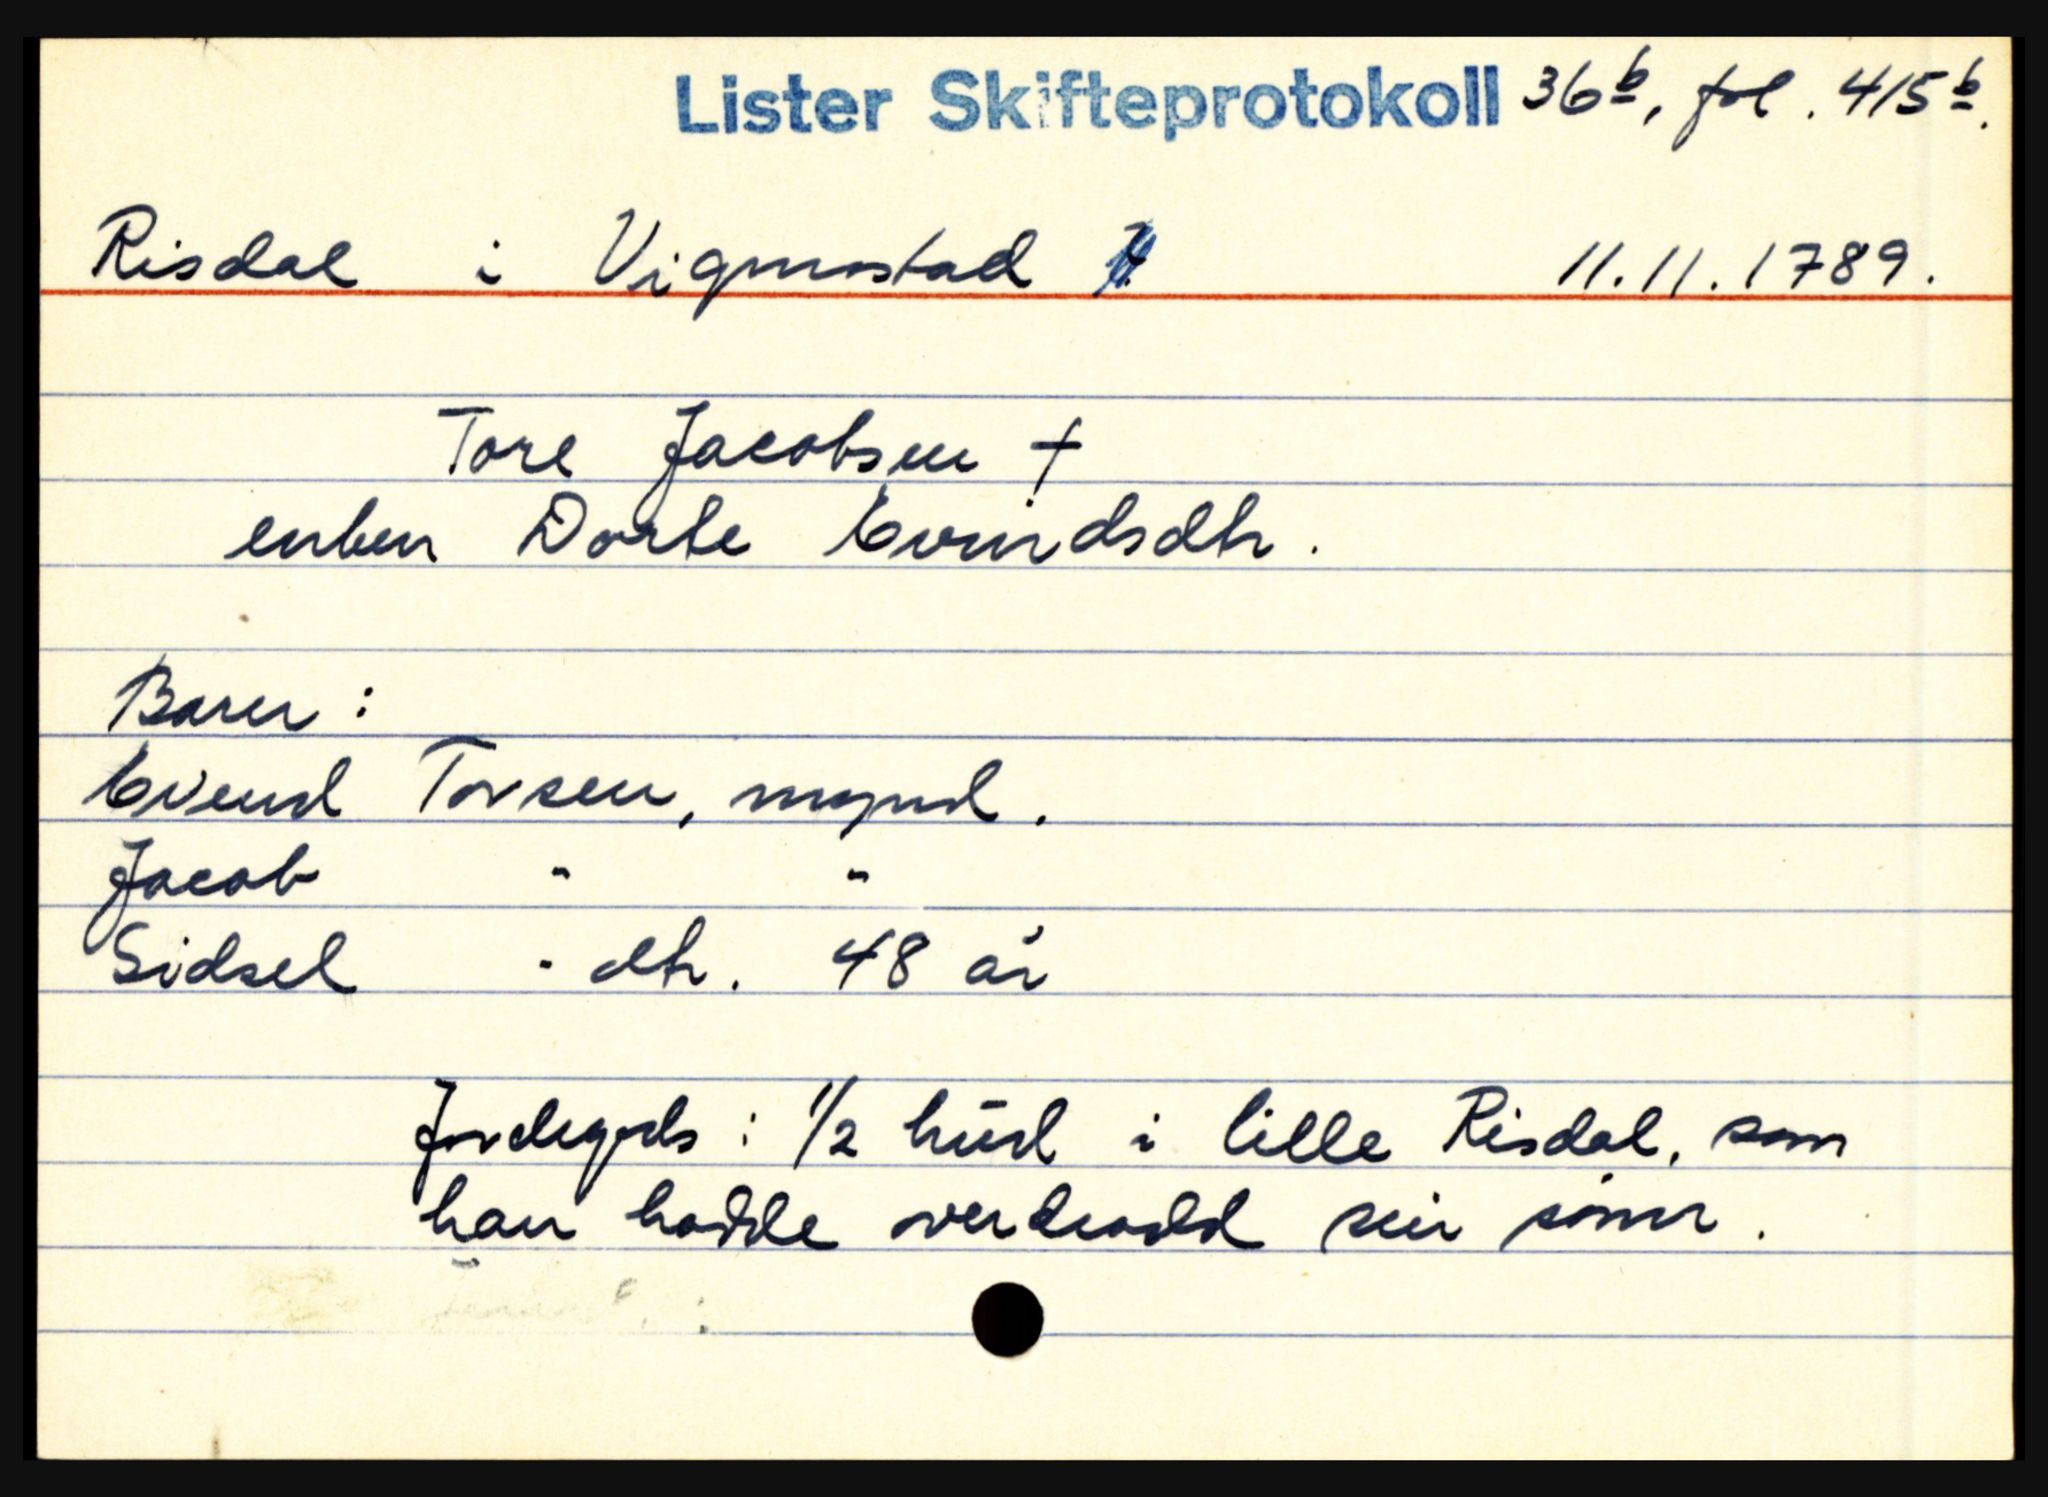 Lister Skifteprotokoll 36b, fol. 415b.
Risdal i Vigmostad 11.11.1789.
Tore Jacobsen †
enken Dorte Evindsdtr.
Barn:
Evend Torsen, mynd.
Jacob " "
Sidsel " dtr. 48 år
Jordegods: 1/2 hud i lille Risdal, som
han hadde overdradd sin sønn.